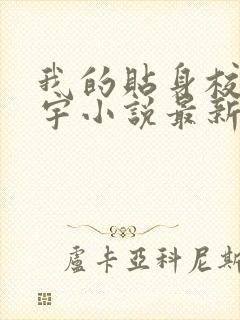 我的貼身校
宇小說最新
盧卡亞科尼斯